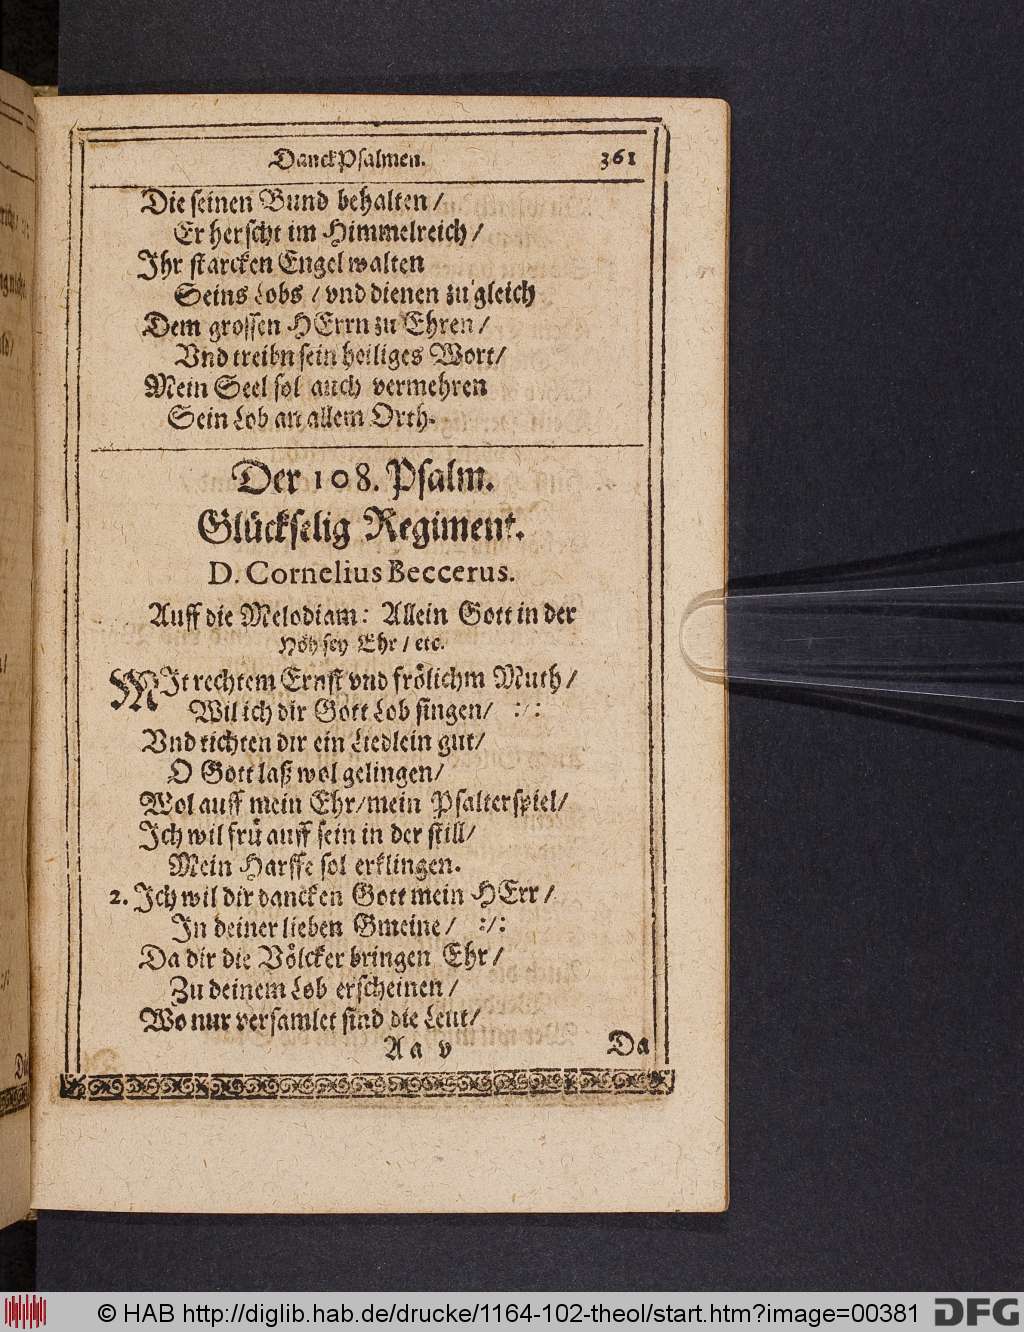 DanckPsalmen. 361
Die seinen Bund behalten /
Er herscht im Himmelreich /
Ihr starcken Engel walten
Seins Lobs / vnd dienen zu gleich
Dem grossen HErrn zu Ehren /
Vnd treibn sein heiliges Wort /
Mein Seel sol auch vermehren
Sein Lob an allem Orth.
Der 108. Psalm.
Glückselig Regiment.
D. Cornelius Beccerus.
Auff die Melodiam: Allein Gott in der
Höh sey Ehr / etc.
MIt rechtem Ernst vnd frölichm Muth /
Wil ich dir Gott Lob singen / :/:
Vnd tichten dir ein Liedlein gut /
O Gott laß wol gelingen /
Wol auff mein Ehr / mein Psalterspiel /
Ich wil frü auff sein in der still /
Mein Harffe sol erklingen.
2. Ich wil dir dancken Gott mein HErr /
In deiner lieben Gmeine / :/:
Da dir die Völcker bringen Ehr /
Zu deinem Lob erscheinen /
Wo nur versamlet sind die Leut /
Aa v Da
© HAB http://diglib.hab.de/drucke/1164-102-theol/start.htm?image=00381 DFG